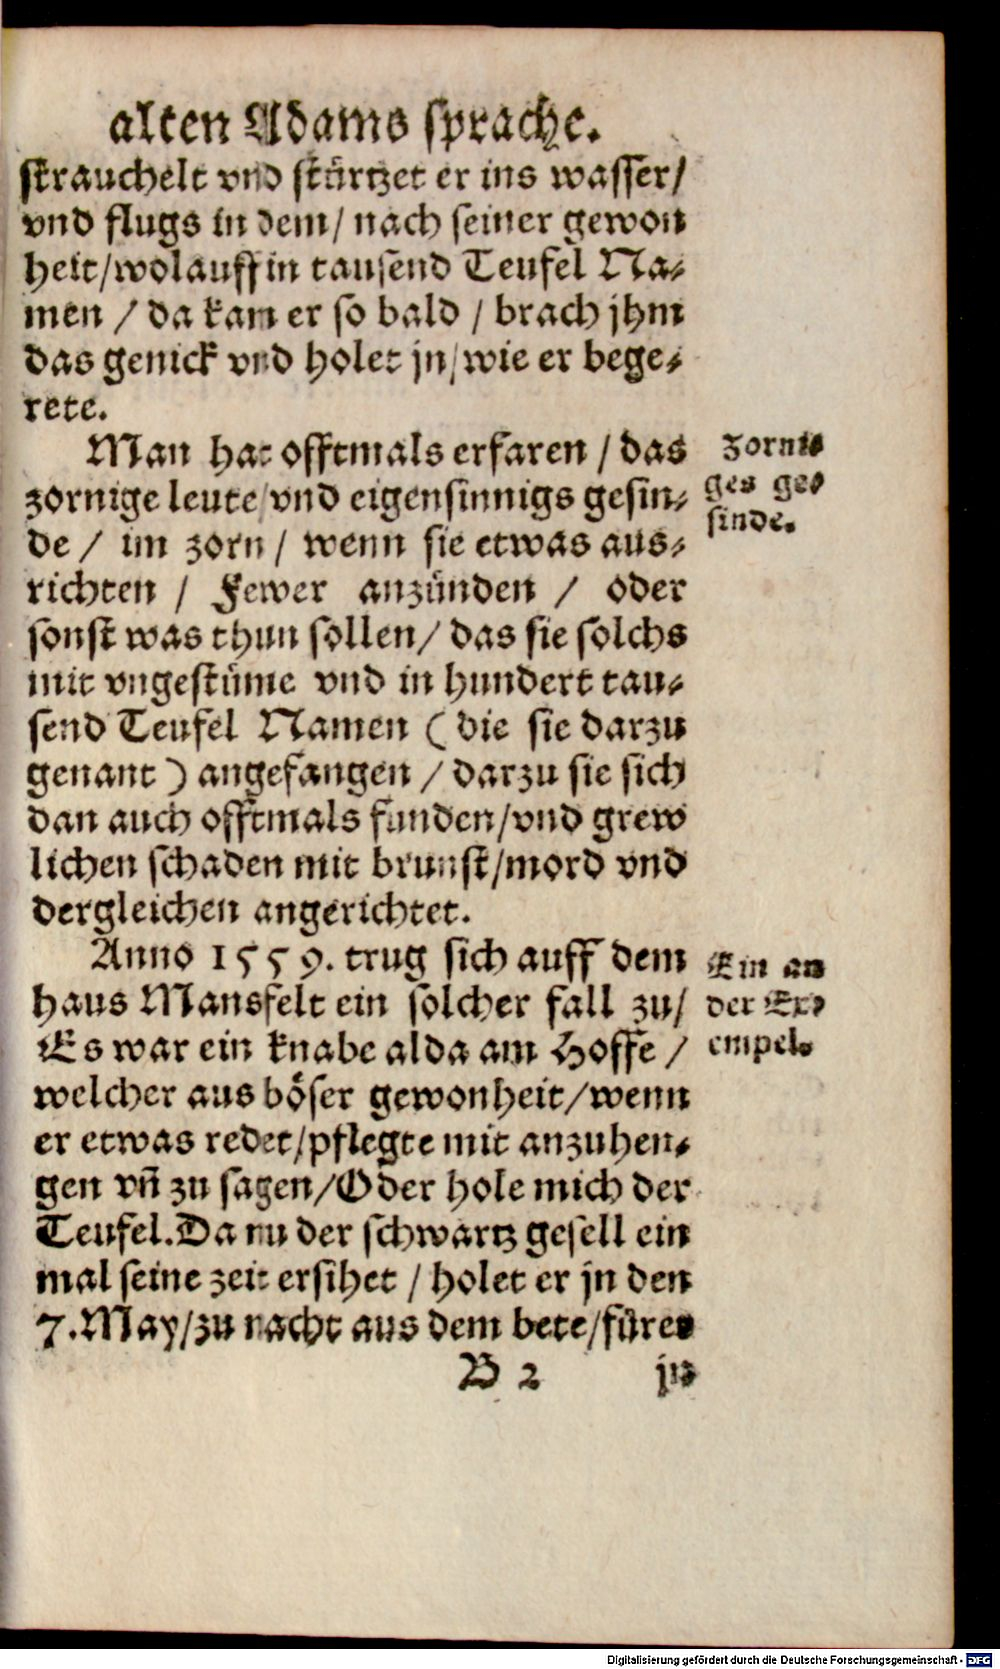 alten Adams sprache.
strauchelt vnd stürtzet er ins wasser/
vnd flugs in dem/ nach seiner gewon
heit/wolauff in tausend Teufel Na-
men / da kam er so bald / brach jhm
das genick vnd holet jn/ wie er bege-
rete.
Man hat offtmals erfaren / das
zornige leute/ vnd eigensinnigs gesin-
de / im zorn / wenn sie etwas aus-
richten / Fewer anzünden / oder
sonst was thun sollen/ das sie solchs
mit vngestüme vnd in hundert tau-
send Teufel Namen ( die sie darzu
genant ) angefangen / darzu sie sich
dan auch offtmals funden/vnd grew
lichen schaden mit brunst/mord vnd
dergleichen angerichtet.
Zorni-
ges ge-
sinde.
Anno 1559. trug sich auff dem
haus Mansfelt ein solcher fall zu/
Es war ein knabe alda am Hoffe /
welcher aus böser gewonheit/wenn
er etwas redet/pflegte mit anzuhen-
gen vñ zu sagen/Oder hole mich der
Teufel.Da nu der schwartz gesell ein
mal seine zeit ersihet / holet er jn den
7.May/zu nacht aus dem bete/füret
Ein an
der Ex-
empel.
B 2 jn
Digitalisierung gefördert durch die Deutsche Forschungsgemeinschaft - DFG